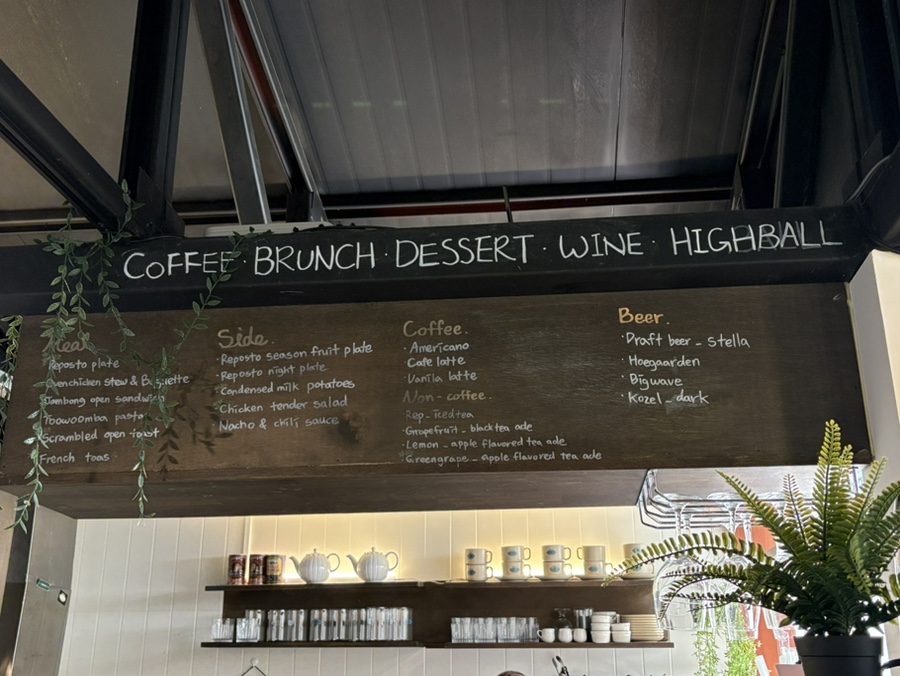 COFFEE · BRUNCH · DESSERT · WINE · HIGHBALL
Meal
Reposto plate
Ovenchicken stew & Baguette
Jambong open sandwich
Toowoomba pasta
Scrambled open toast
French toas
Side.
· Reposto season fruit plate
· Reposto night plate
· Condensed milk potatoes
· Chicken tender salad
· Nacho & chili sauce
Coffee.
· Americano
· Cafe latte
· Vanila latte
Non-coffee.
· Rep_icedtea
· Grapefruit_ blacktea ade
· Lemon_ apple flavored tea ade
· Greengrape_ apple flavored tea ade
Beer.
· Draft beer_ Stella
· Hoegaarden
· Bigwave
· Kozel_dark